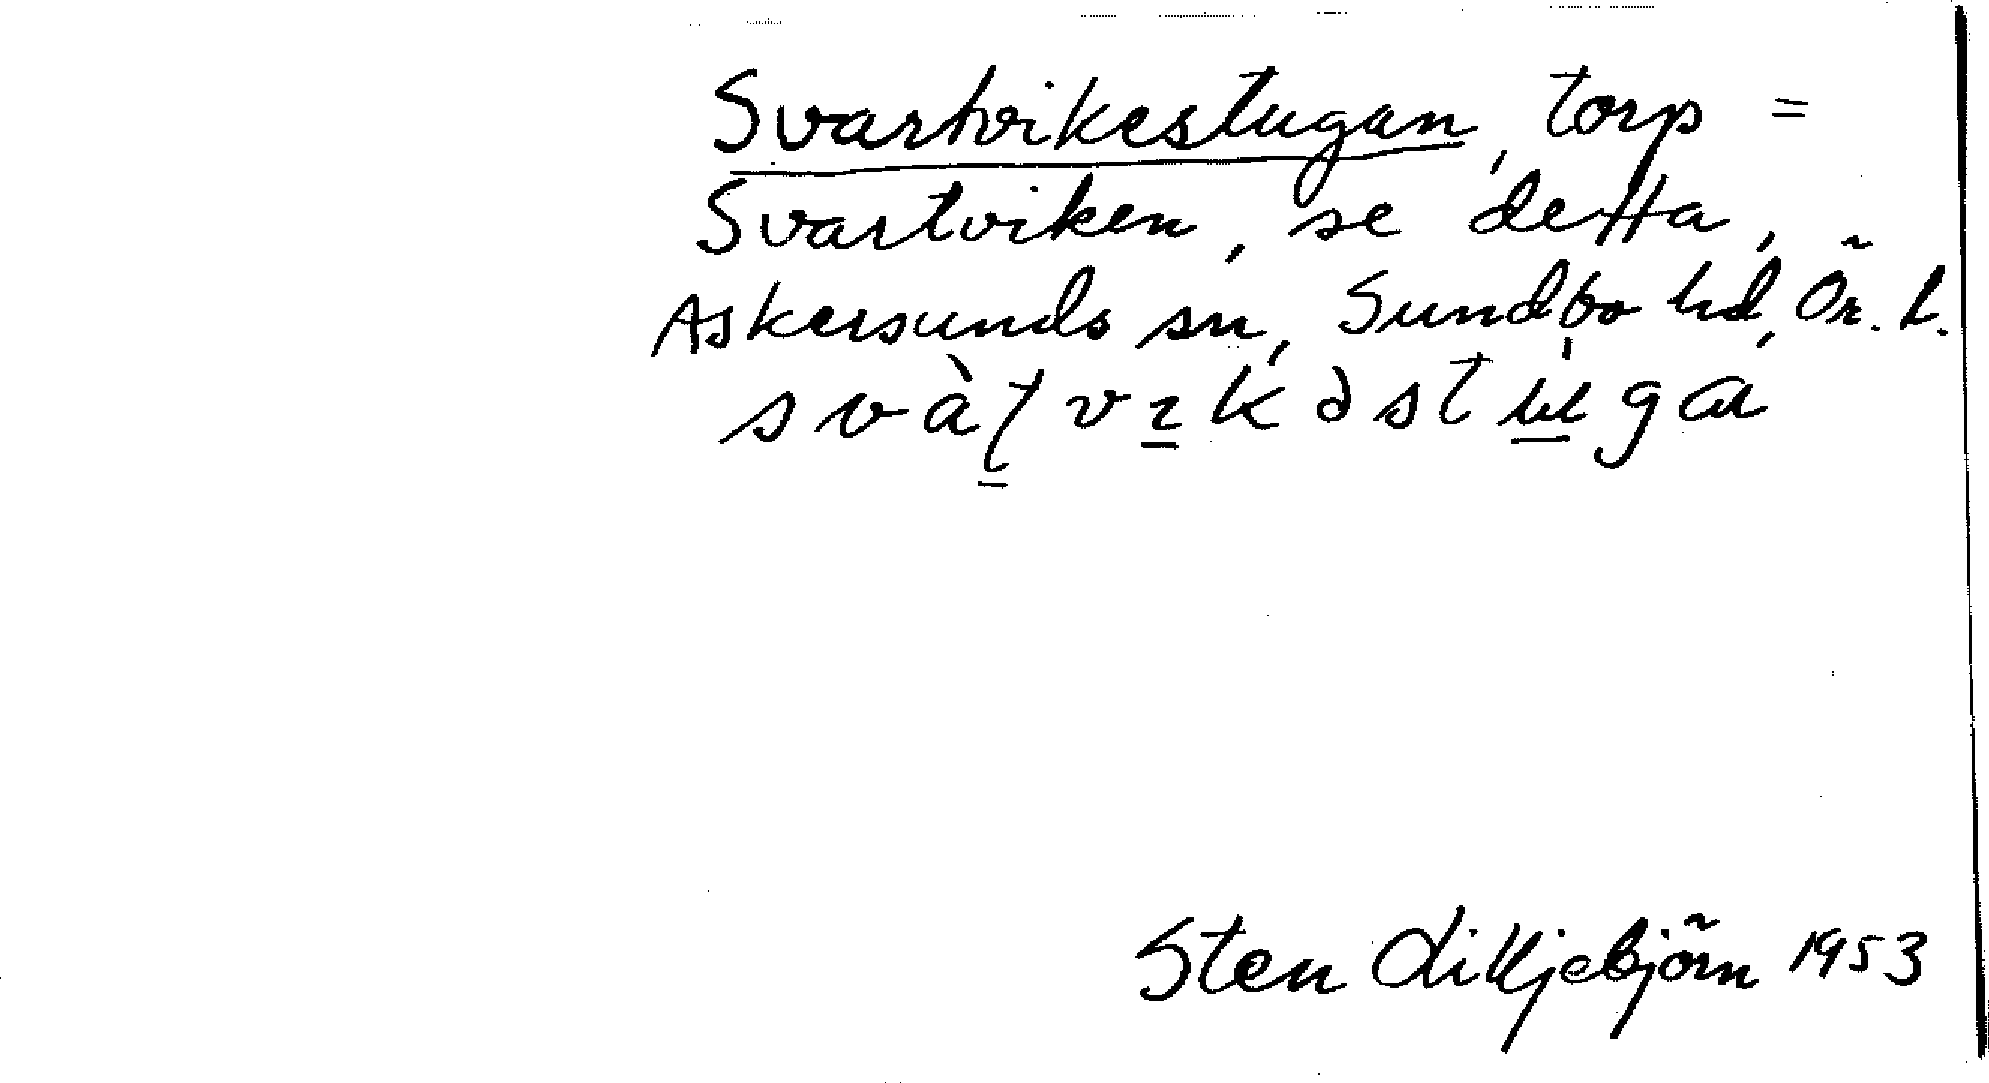 Svartvikestugan, torp =
Svartviken, se detta,
Askersunds sn, Sundbo hd, Ör. l.
svàʈvɪkəstɯ́ga
Sten Lilljebjörn 1953